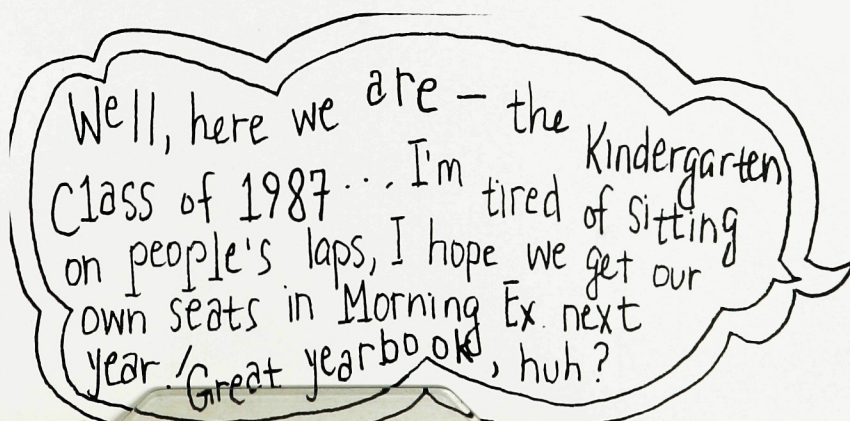 Well, here we are – the Kindergarten
Class of 1987... I'm tired of sitting
on people's laps, I hope we get our
own seats in Morning Ex. next
year! Great yearbook, huh?